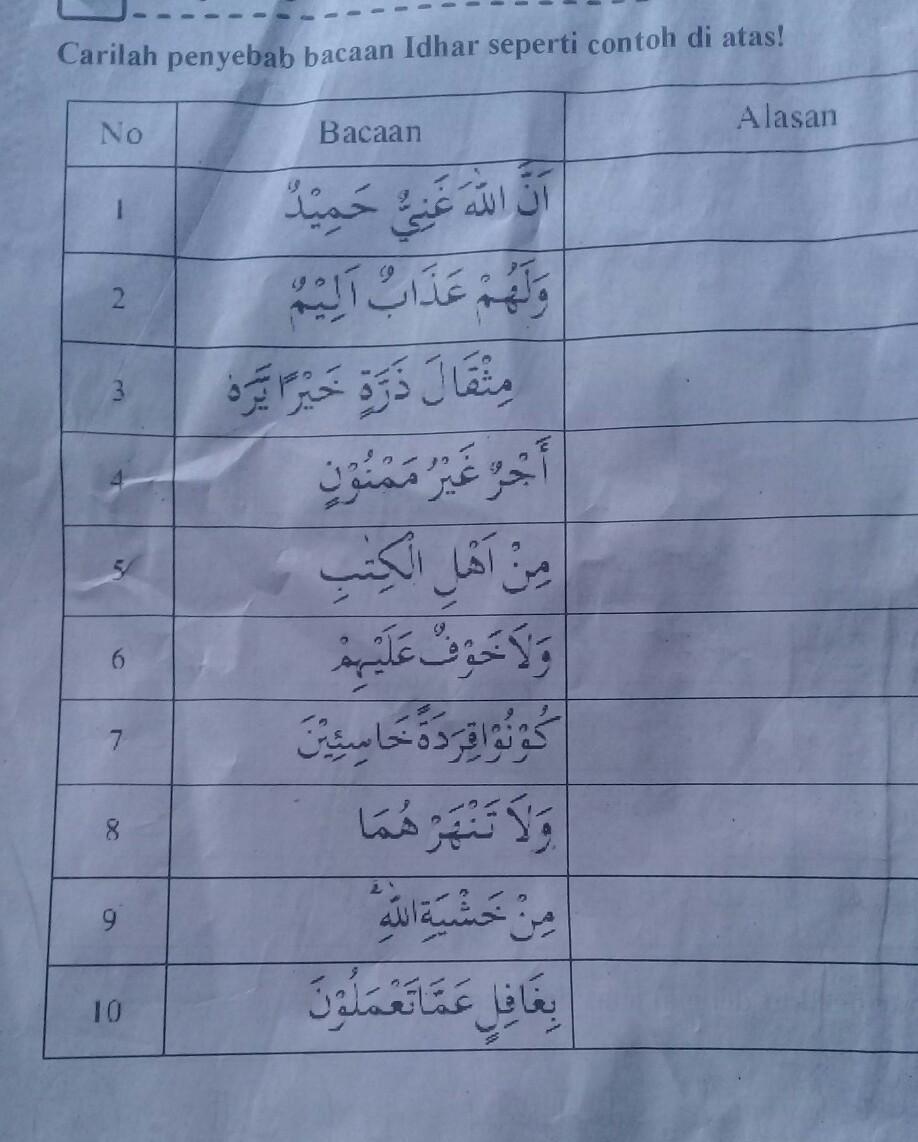 Carilah penyebab bacaan Idhar seperti contoh di atas!
No Bacaan Alasan
1 اَنَّ اللّٰهَ غَنِيٌّ حَمِيْدٌ
2 وَلَهُمْ عَذَابٌ اَلِيْمٌ
3 مِثْقَالَ ذَرَّةٍ خَيْرًا يَّرَهٗ
4 أَجْرٌ غَيْرُ مَمْنُوْنٍ
5 مِنْ اَهْلِ الْكِتٰبِ
6 وَلَا خَوْفٌ عَلَيْهِمْ
7 كُوْنُوْا قِرَدَةً خَاسِئِيْنَ
8 وَلَا تَنْهَرْ هُمَا
9 مِنْ خَشْيَةِ اللّٰهِ ۗ
10 بِغَافِلٍ عَمَّا تَعْمَلُوْنَ